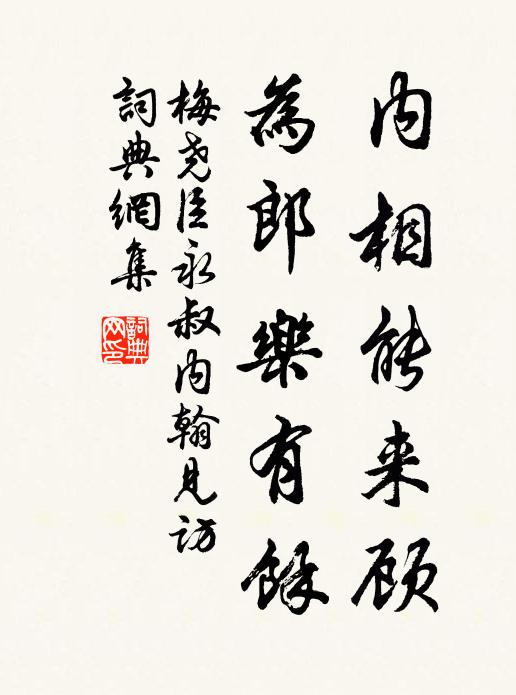 内相能来顾
為郎樂有餘
梅尧臣永叔内翰見访
詞典網集
詞典网印